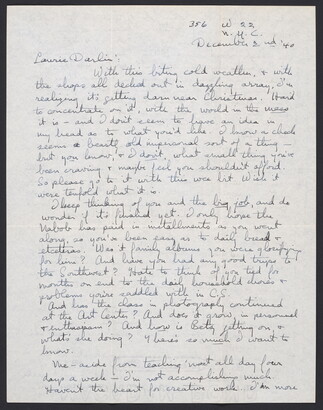 356 W 22
N.Y.C.
December 2nd '40
Laurie Darlin':
With this biting cold weather, & with
the shops all decked out in dazzling array, I'm
realizing it's getting darn near Christmas. Hard
to concentrate on it, with the world in the mess
it is – and I don't seem to have an idea in
my head as to what you'd like. I know a check
seems a beastly old impersonal sort of a thing –
but you know, & I don't, what small thing you've
been craving & maybe feel you shouldn't afford.
So please go to it with this wee bit. Wish it
were tenfold what it is.
I keep thinking of you and the big job, and do
wonder if it's finished yet. I only hope the
has paid in installments as you went
along, so you're been easy as to daily bread &
Was it family albums you were
for him? And have you had any good trips to
the Southwest? Hate to think of you tied for
months on end to the daily household chores &
problems you're saddled with in C.S.
And has the class in photography continued
at the Art Center? And does it grow, in personnel
& enthusiasm? And how is Betty getting on &
what's she doing? There's so much I want to
know.
Me – aside from teaching 'most all day four
days a week – I'm not accomplishing much.
Haven't the heart for creative work. I'm more